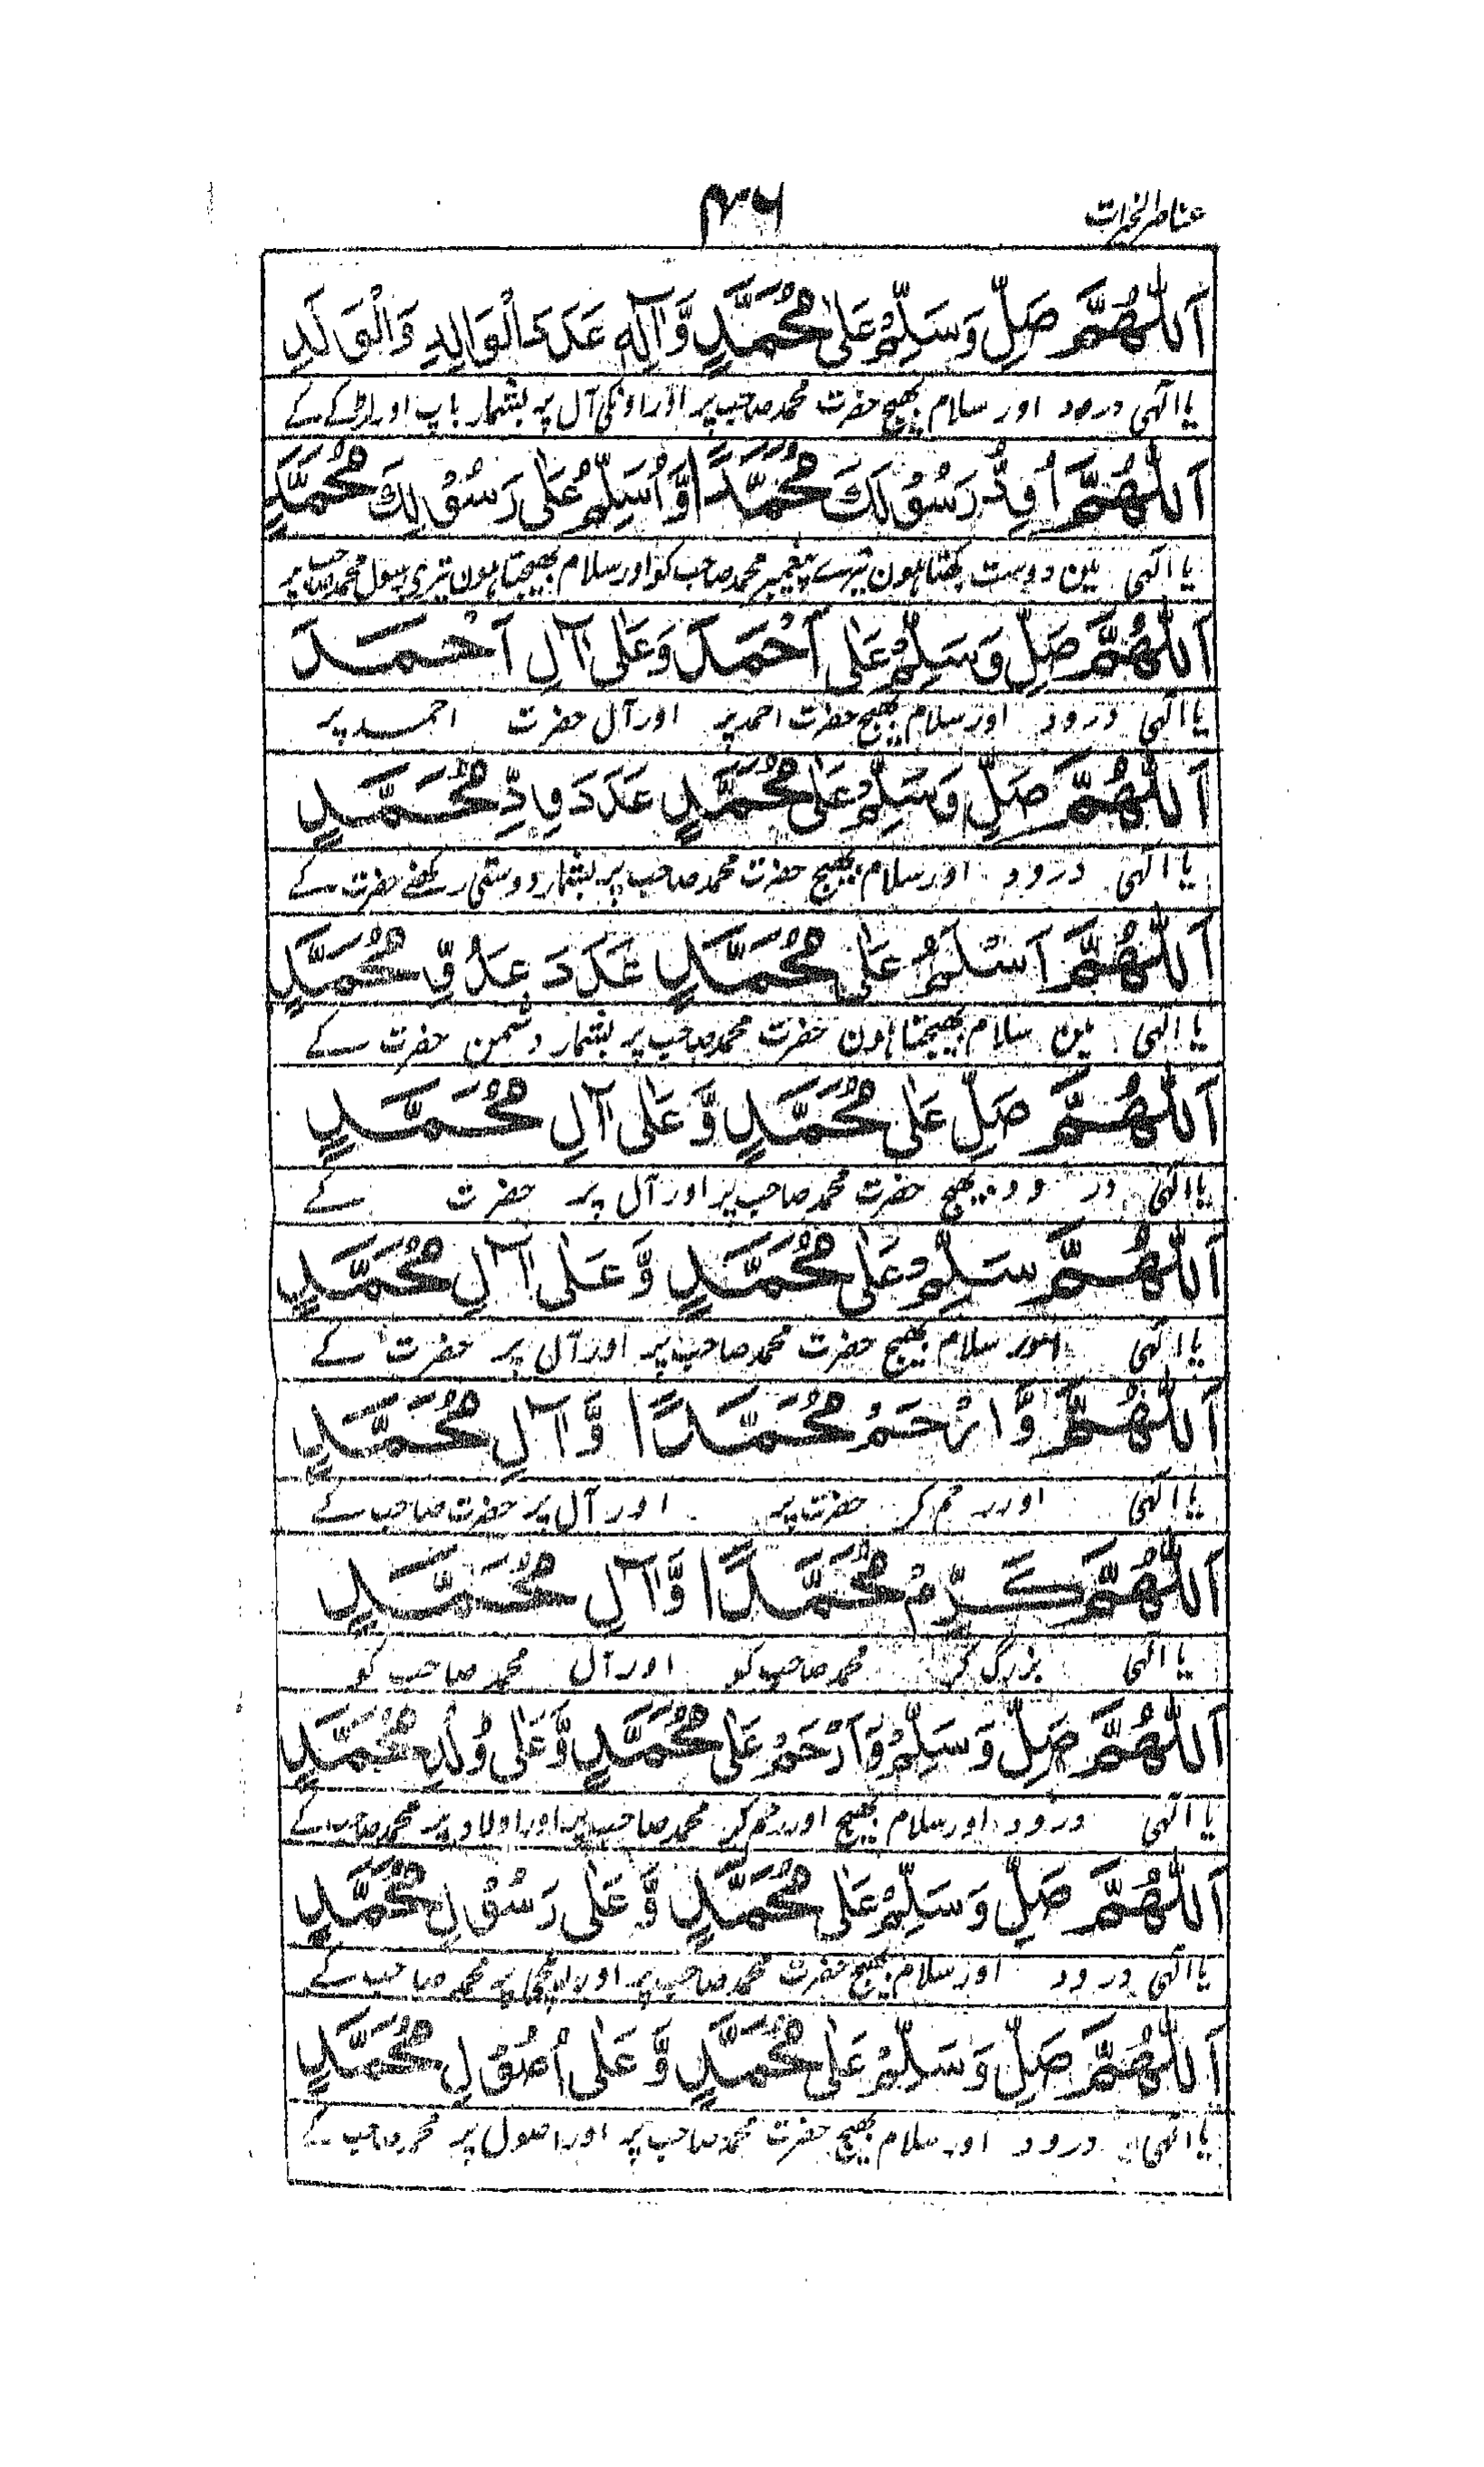 عناصر الخیرات
۴۶
اَللّٰهُمَّ صَلِّ وَسَلِّمْ عَلٰى مُحَمَّدٍ وَّاٰلِهٖ عَدَدَ الْوَالِدِ وَالْوَلَدِ
یا الٰہی درود اور سلام بھیج حضرت محمد صاحب پر اور اونکی آل پر بشمار باپ اور لڑکے کے
اَللّٰهُمَّ اُوِدُّ رَسُوْلَكَ مُحَمَّدًا وَّاُسَلِّمُ عَلٰى رَسُوْلِكَ مُحَمَّدٍ
یا الٰہی مین دوست رکھتا ہون تیرے پیغمبر محمد صاحب کو اور سلام بھیجتا ہون تیری رسول محمد صاحب پر
اَللّٰهُمَّ صَلِّ وَسَلِّمْ عَلٰى اَحْمَدَ وَعَلٰى اٰلِ اَحْمَدَ
یا الٰہی درود اور سلام بھیج حضرت احمد پر اور آل حضرت احمد پر
اَللّٰهُمَّ صَلِّ وَسَلِّمْ عَلٰى مُحَمَّدٍ عَدَدَ وِدِّ مُحَمَّدٍ
یا الٰہی درود اور سلام بھیج حضرت محمد صاحب پر بشمار دوستی رکھنے حضرت کے
اَللّٰهُمَّ اَسْلَمُ عَلٰى مُحَمَّدٍ عَدَدَ عَدُوِّ مُحَمَّدٍ
یا الٰہی مین سلام بھیجتا ہون حضرت محمد صاحب پر بشمار دشمن حضرت کے
اَللّٰهُمَّ صَلِّ عَلٰى مُحَمَّدٍ وَّعَلٰى اٰلِ مُحَمَّدٍ
یا الٰہی درود بھیج حضرت محمد صاحب پر اور آل پر حضرت کے
اَللّٰهُمَّ سَلِّمْ عَلٰى مُحَمَّدٍ وَّعَلٰى اٰلِ مُحَمَّدٍ
یا الٰہی اور سلام بھیج حضرت محمد صاحب پر اور آل پر حضرت کے
اَللّٰهُمَّ وَّارْحَمْ مُحَمَّدًا وَّاٰلِ مُحَمَّدٍ
یا الٰہی اور رحم کر حضرت پر اور آل پر حضرت صاحب کے
اَللّٰهُمَّ كَرِّمْ مُحَمَّدًا وَّاٰلِ مُحَمَّدٍ
یا الٰہی بزرگ کر محمد صاحب کو اور آل محمد صاحب کو
اَللّٰهُمَّ صَلِّ وَسَلِّمْ وَارْحَمْ عَلٰى مُحَمَّدٍ وَّعَلٰى وُلْدِ مُحَمَّدٍ
یا الٰہی درود اور سلام بھیج اور رحم کر محمد صاحب پر اور اولاد پر محمد صاحب کے
اَللّٰهُمَّ صَلِّ وَسَلِّمْ عَلٰى مُحَمَّدٍ وَّعَلٰى رَسُوْلِ مُحَمَّدٍ
یا الٰہی درود اور سلام بھیج حضرت محمد صاحب پر اور پر محمد صاحب کے
اَللّٰهُمَّ صَلِّ وَسَلِّمْ عَلٰى مُحَمَّدٍ وَّعَلٰى اُصُوْلِ مُحَمَّدٍ
یا الٰہی درود اور سلام بھیج حضرت محمد صاحب پر اور اصول پر محمد صاحب کے